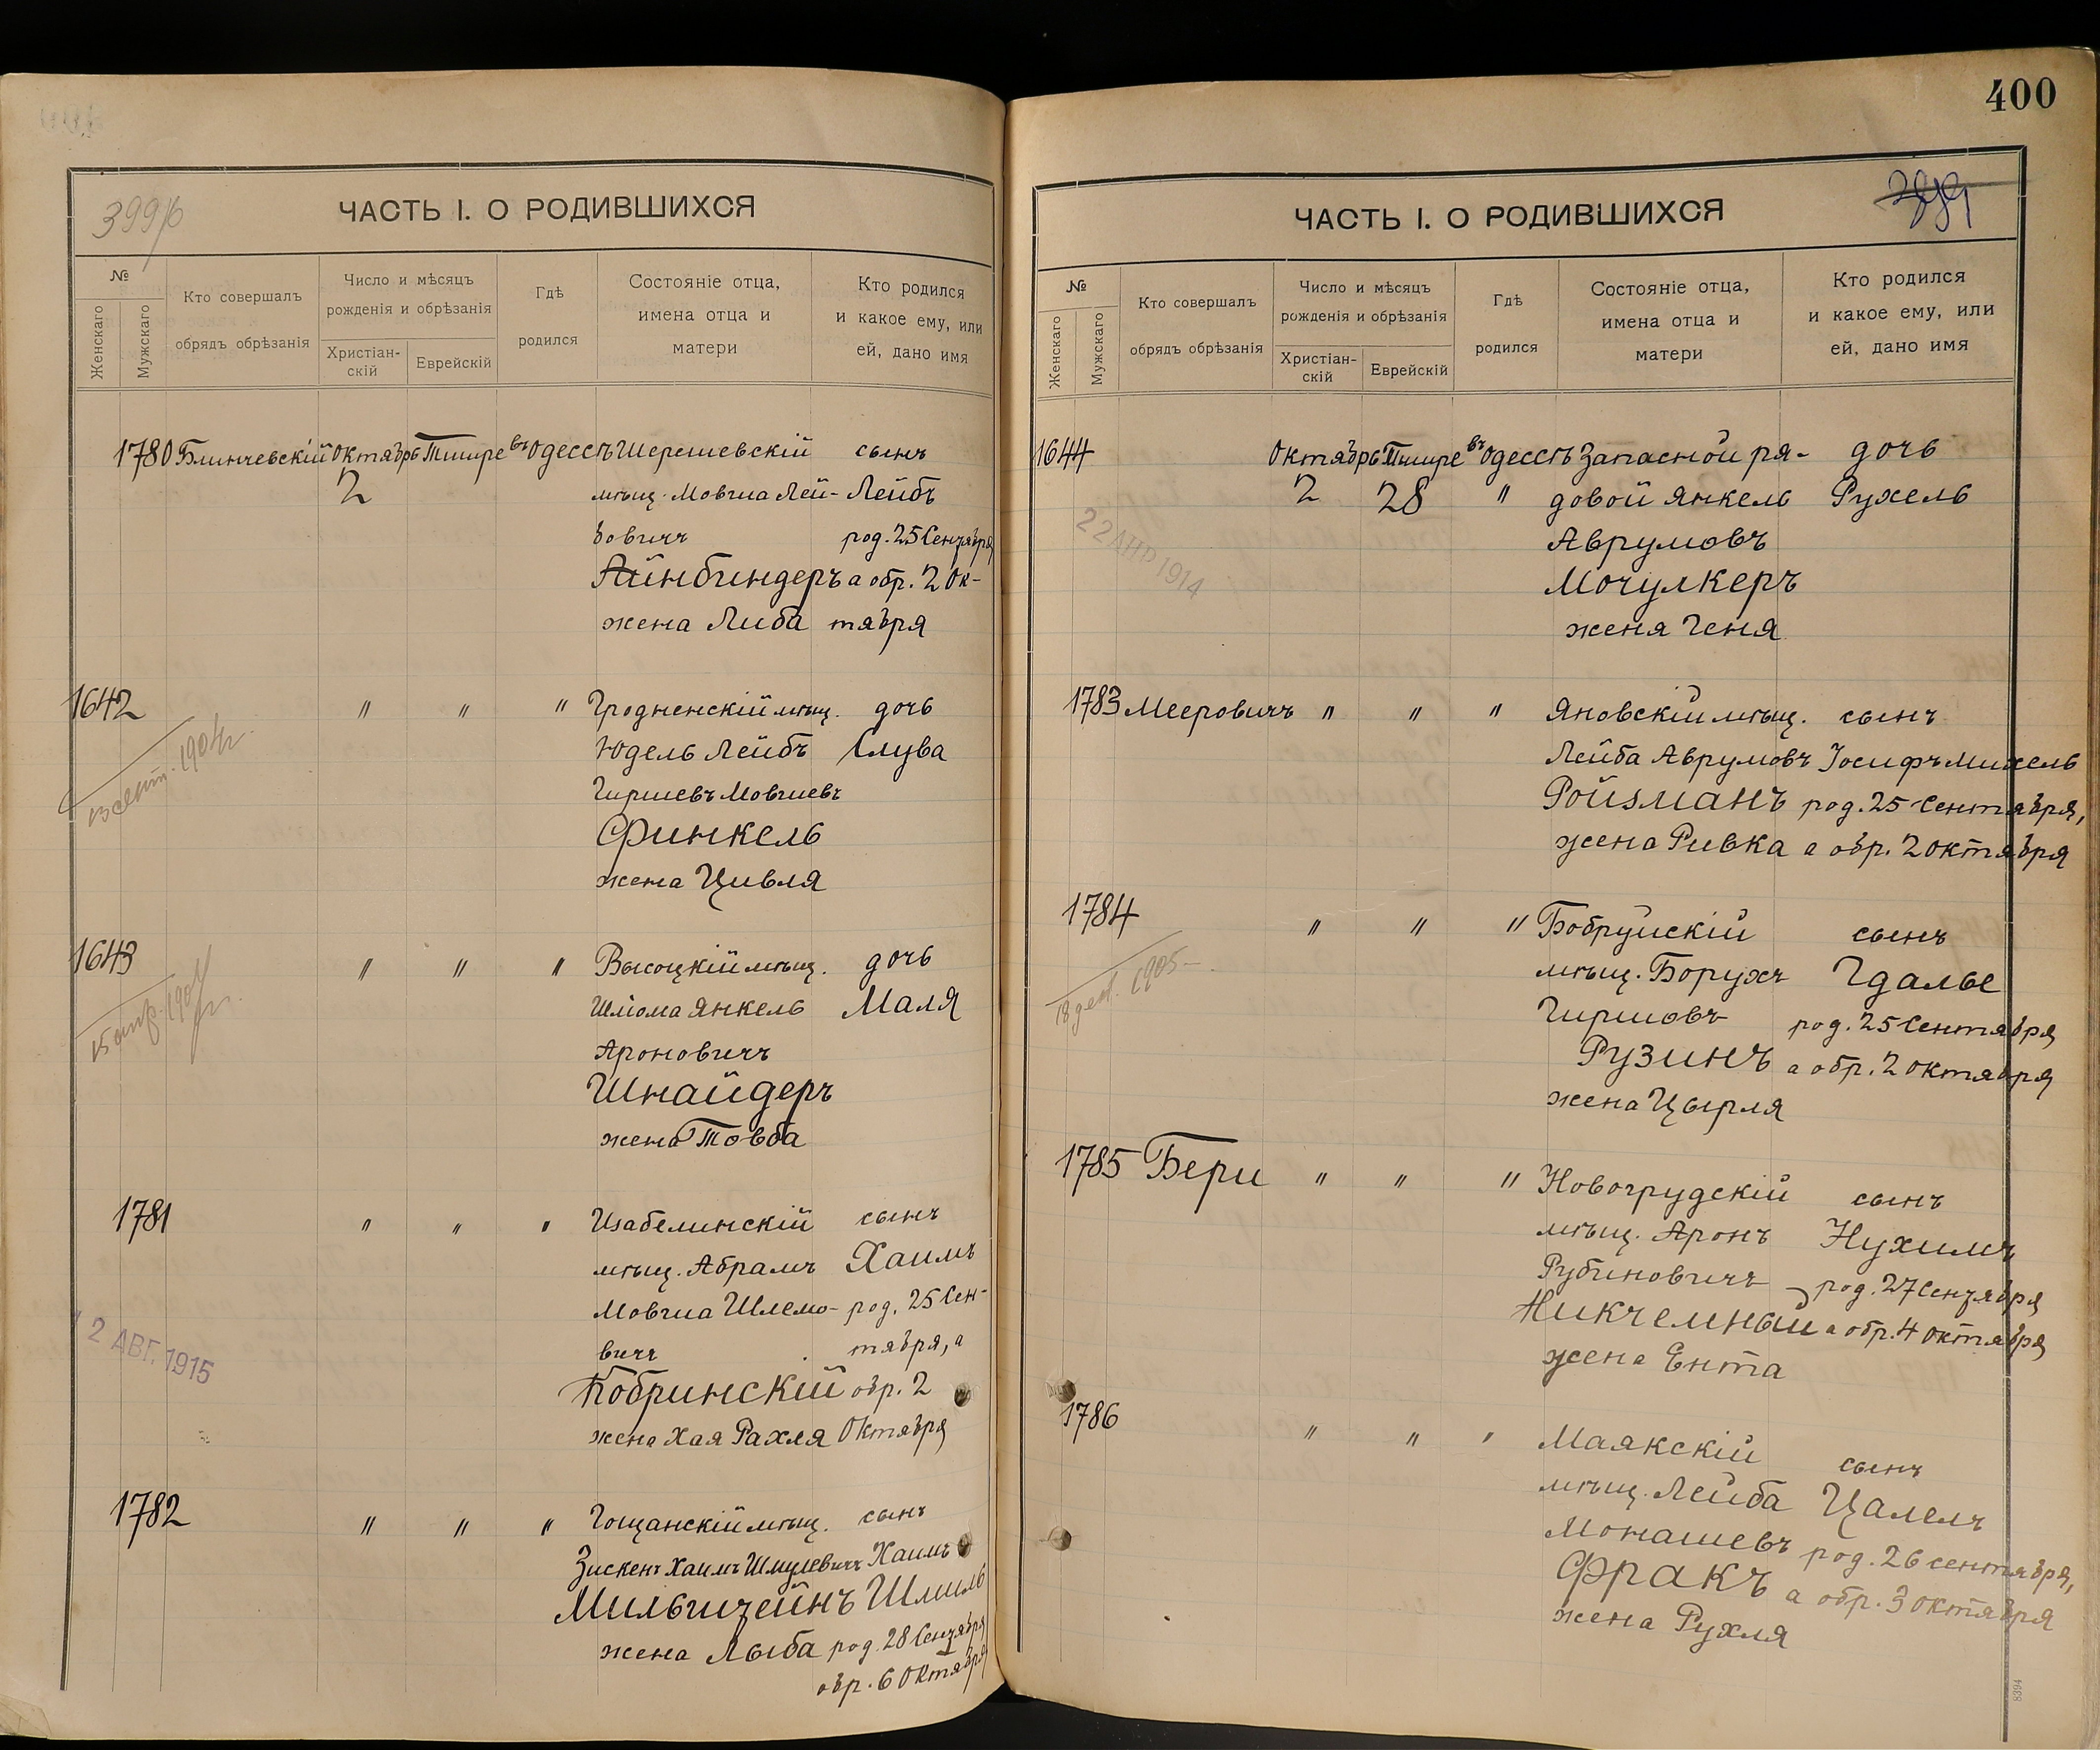 399/б
ЧАСТЬ I. О РОДИВШИХСЯ
№
Женскаго
Мужскаго
Кто совершалъ
обрядъ обрѣзанія
Число и мѣсяцъ
рожденія и обрѣзанія
Христіан-
скій
Еврейскій
Гдѣ
родился
Состояніе отца,
имена отца и
матери
Кто родился
и какое ему, или
ей, дано имя
1780 Блинчевскій Октябрь Тишре въ Одессѣ Шерешевскій сынъ
2 мѣщ. Мовша Лей- Лейбъ
бовичъ род. 25 Сентября
Айнбиндеръ а обр. 2 Ок-
жена Либа тября
1642 " " " Гродненскій мѣщ. дочь
Юдель Лейбъ Слува
Гиршевъ Мовшевъ
Финкель
жена Цивля
13 сент. 1904 г.
1643 " " " Высоцкій мѣщ. дочь
Шлома Янкель Маля
Ароновичъ
Шнайдеръ
жена Товба
1781 " " " Изабелинскій сынъ
мѣщ. Абрамъ Хаимъ
Мовша Шлемо- род. 25 Сен-
вичъ тября, а
Кобринскій обр. 2
жена Хая Рахля Октября
12 АВГ. 1915
1782 " " " Гощанскій мѣщ. сынъ
Зискенъ Хаимъ Шмулевичъ Хаимъ
Мильштейнъ Шмиль
жена Лыба род. 28 Сентября
обр. 6 Октября
400
399
ЧАСТЬ I. О РОДИВШИХСЯ
№
Женскаго
Мужскаго
Кто совершалъ
обрядъ обрѣзанія
Число и мѣсяцъ
рожденія и обрѣзанія
Христіан-
скій
Еврейскій
Гдѣ
родился
Состояніе отца,
имена отца и
матери
Кто родился
и какое ему, или
ей, дано имя
1644 Октябрь Тишре въ Одессѣ Запасной ря- дочь
2 28 " довой Янкель Рухель
Аврумовъ
Мочулкеръ
женя Геня
22 АПР 1914
1783 Мееровичъ " " " Яновскій мѣщ. сынъ
Лейба Аврумовъ Іосифъ Михель
Ройзманъ род. 25 Сентября,
жена Ривка а обр. 2 Октября
1784 " " " Бобруйскій сынъ
мѣщ. Борухъ Гдалье
Гиршовъ род. 25 Сентября
Рузинъ а обр. 2 Октября
жена Цырля
18 дек. 1905
1785 Бери " " " Новогрудскій сынъ
мѣщ. Аронъ Нухимъ
Рубиновичъ род. 27 Сентября
Никчемный а обр. 4 Октября
жена Ента
1786 " " " Маякскій сынъ
мѣщ. Лейба Цалелъ
Монашевъ род. 26 сентября,
Фракъ а обр. 3 октября
жена Рухля
8394